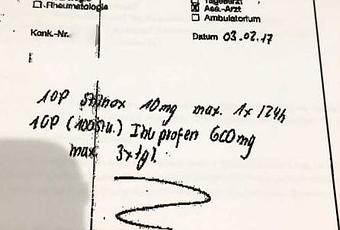 Rheumatologie
Tagesarzt
Ass.-Arzt
Ambulatorium
Konk.-Nr.
Datum 03.02.17
1OP Stilnox 10mg max. 1x/24h
1OP (100Stü.) Ibuprofen 600mg
max. 3xtgl.